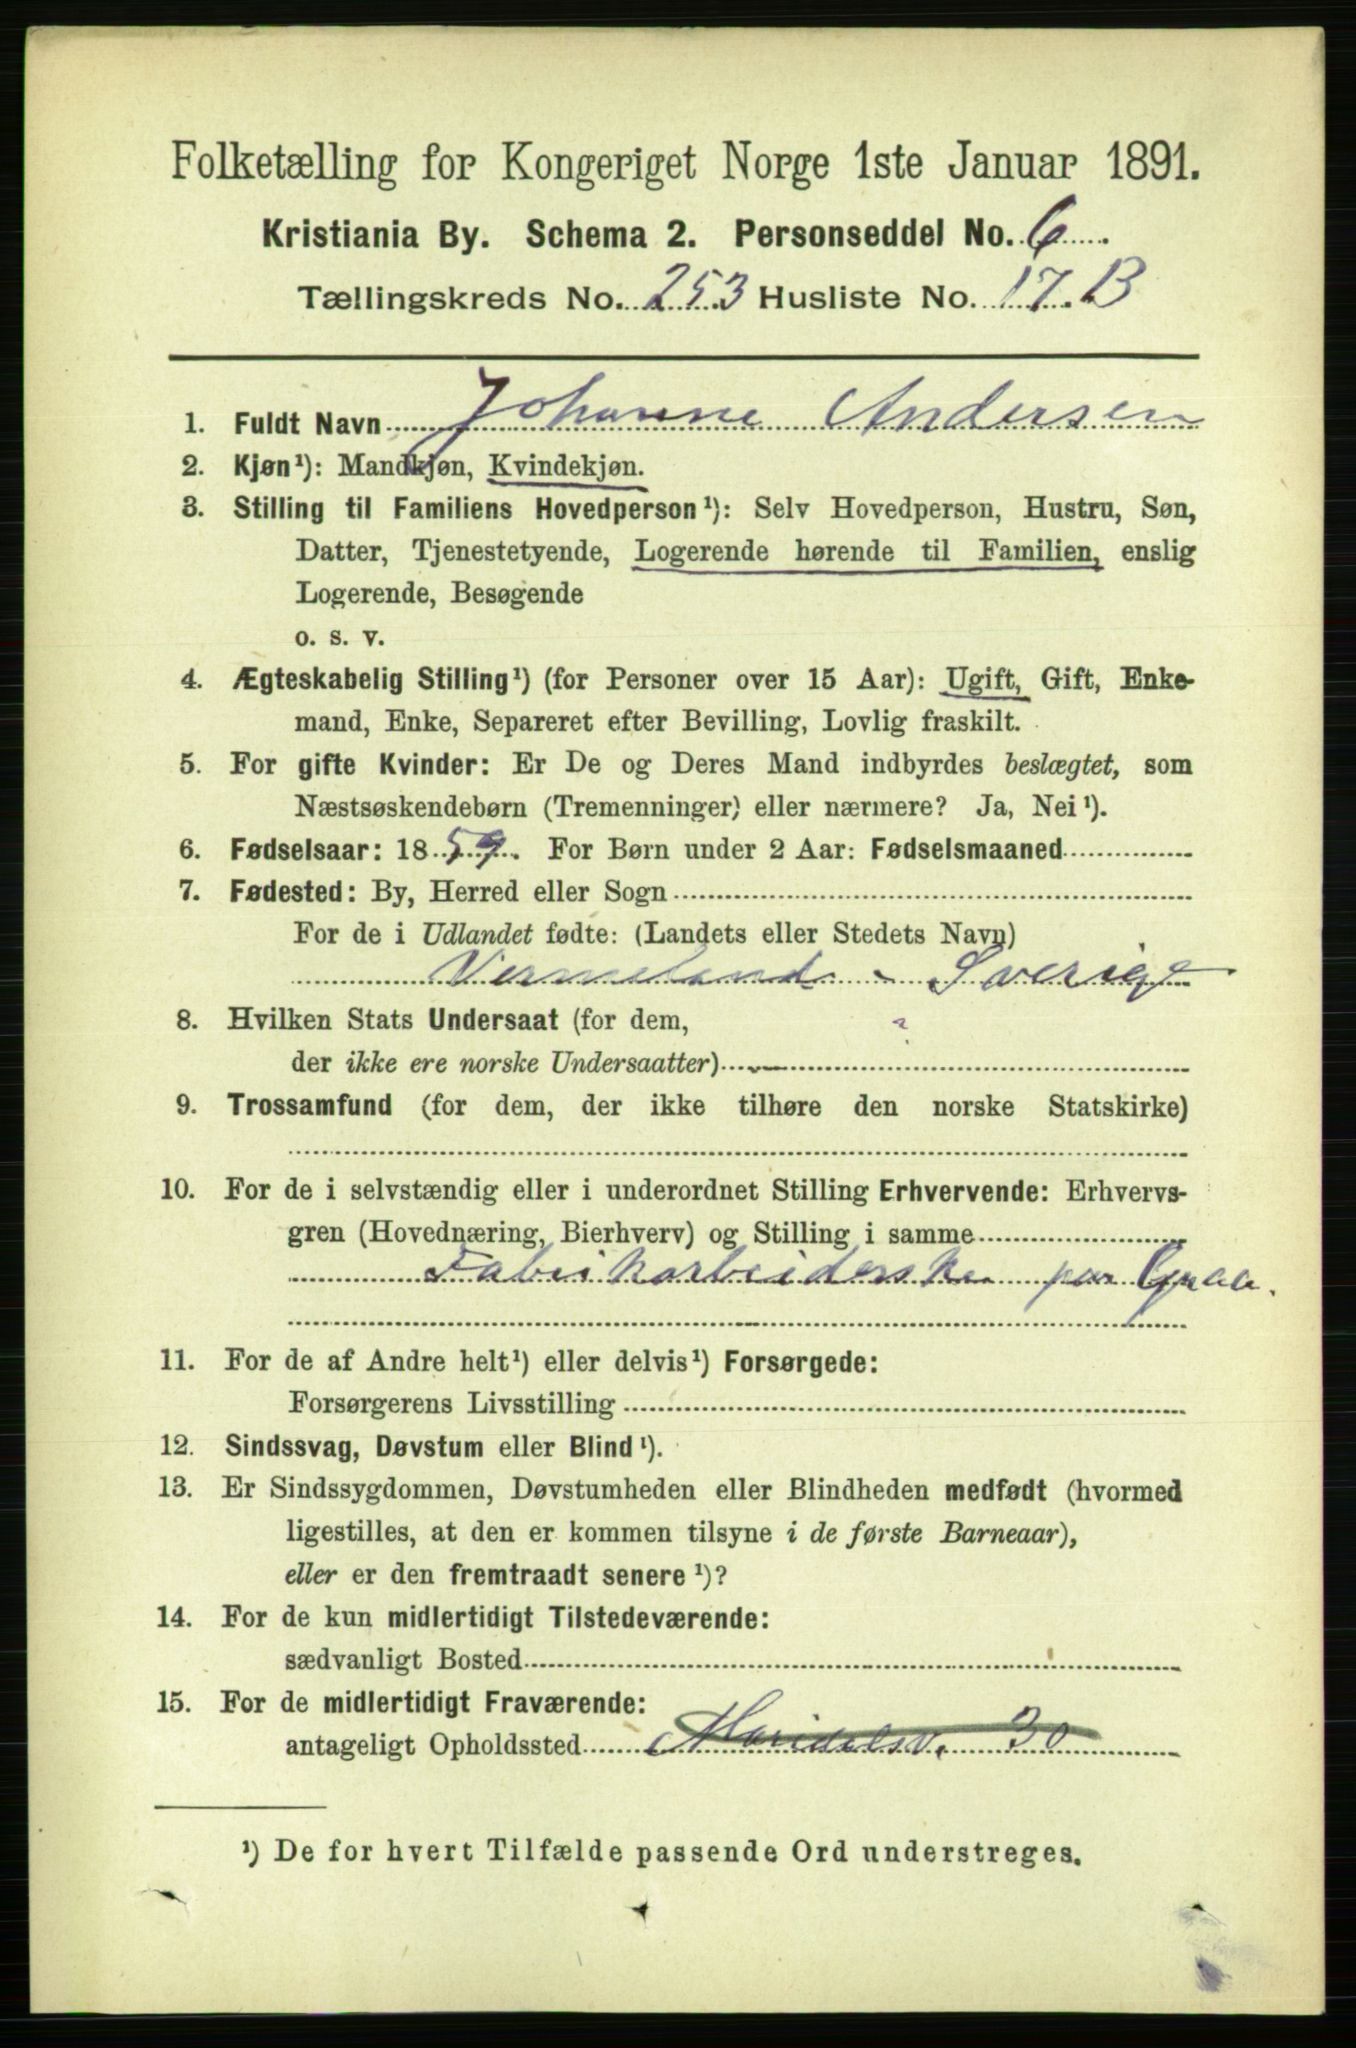 Folketælling for Kongeriget Norge 1ste Januar 1891.
Kristiania By. Schema 2. Personseddel No. 6
Tællingskreds No. 253 Husliste No. 17.B
1. Fuldt Navn Johanne Andersen
2. Kjøn¹): Mandkjøn, Kvindekjøn.
3. Stilling til Familiens Hovedperson¹): Selv Hovedperson, Hustru, Søn,
Datter, Tjenestetyende, Logerende hørende til Familien, enslig
Logerende, Besøgende
o. s. v.
4. Ægteskabelig Stilling¹) (for Personer over 15 Aar): Ugift, Gift, Enke-
mand, Enke, Separeret efter Bevilling, Lovlig fraskilt.
5. For gifte Kvinder: Er De og Deres Mand indbyrdes beslægtet, som
Næstsøskendebørn (Tremenninger) eller nærmere? Ja, Nei¹).
6. Fødselsaar: 1859. For Børn under 2 Aar: Fødselsmaaned
7. Fødested: By, Herred eller Sogn
For de i Udlandet fødte: (Landets eller Stedets Navn)
Vermeland - Sverige
8. Hvilken Stats Undersaat (for dem, ?
der ikke ere norske Undersaatter)
9. Trossamfund (for dem, der ikke tilhøre den norske Statskirke)
10. For de i selvstændig eller i underordnet Stilling Erhvervende: Erhvervs-
gren (Hovednæring, Bierhverv) og Stilling i samme
Fabrikarbeiderske paa Graa.
11. For de af Andre helt¹) eller delvis¹) Forsørgede:
Forsørgerens Livsstilling
12. Sindssvag, Døvstum eller Blind¹).
13. Er Sindssygdommen, Døvstumheden eller Blindheden medfødt (hvormed
ligestilles, at den er kommen tilsyne i de første Barneaar),
eller er den fremtraadt senere¹)?
14. For de kun midlertidigt Tilstedeværende:
sædvanligt Bosted
15. For de midlertidigt Fraværende:
antageligt Opholdssted Maridalsv. 30
¹) De for hvert Tilfælde passende Ord understreges.